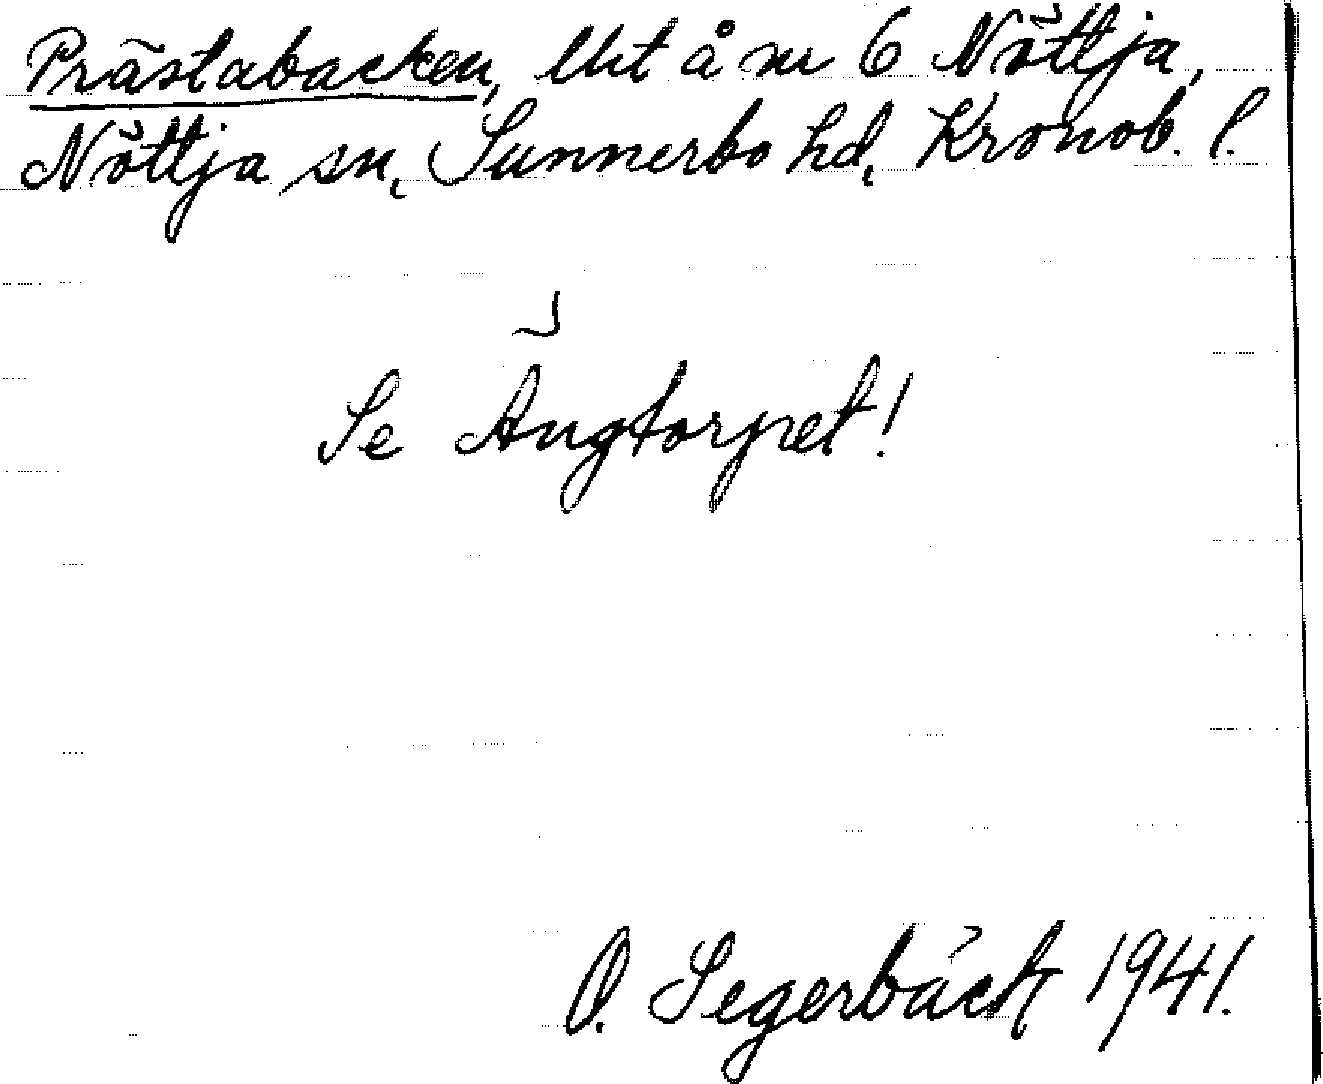 Prästabacken, lht å nr 6 Nöttja,
Nöttja sn, Sunnerbo hd, Kronob. l.
Se Ängtorpet!
O. Segerbäck 1941.